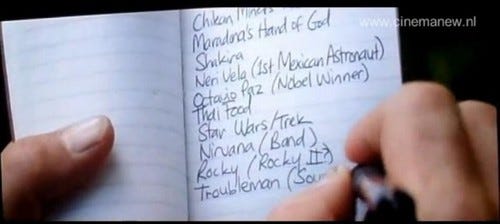 www.cinemanew.nl
Chilean Miners
Maradona's Hand of God
Shakira
Neri Vela (1st Mexican Astronaut)
Octavio Paz (Nobel Winner)
Thai Food
Star Wars/Trek
Nirvana (Band)
Rocky (Rocky II?)
Troubleman (Sou